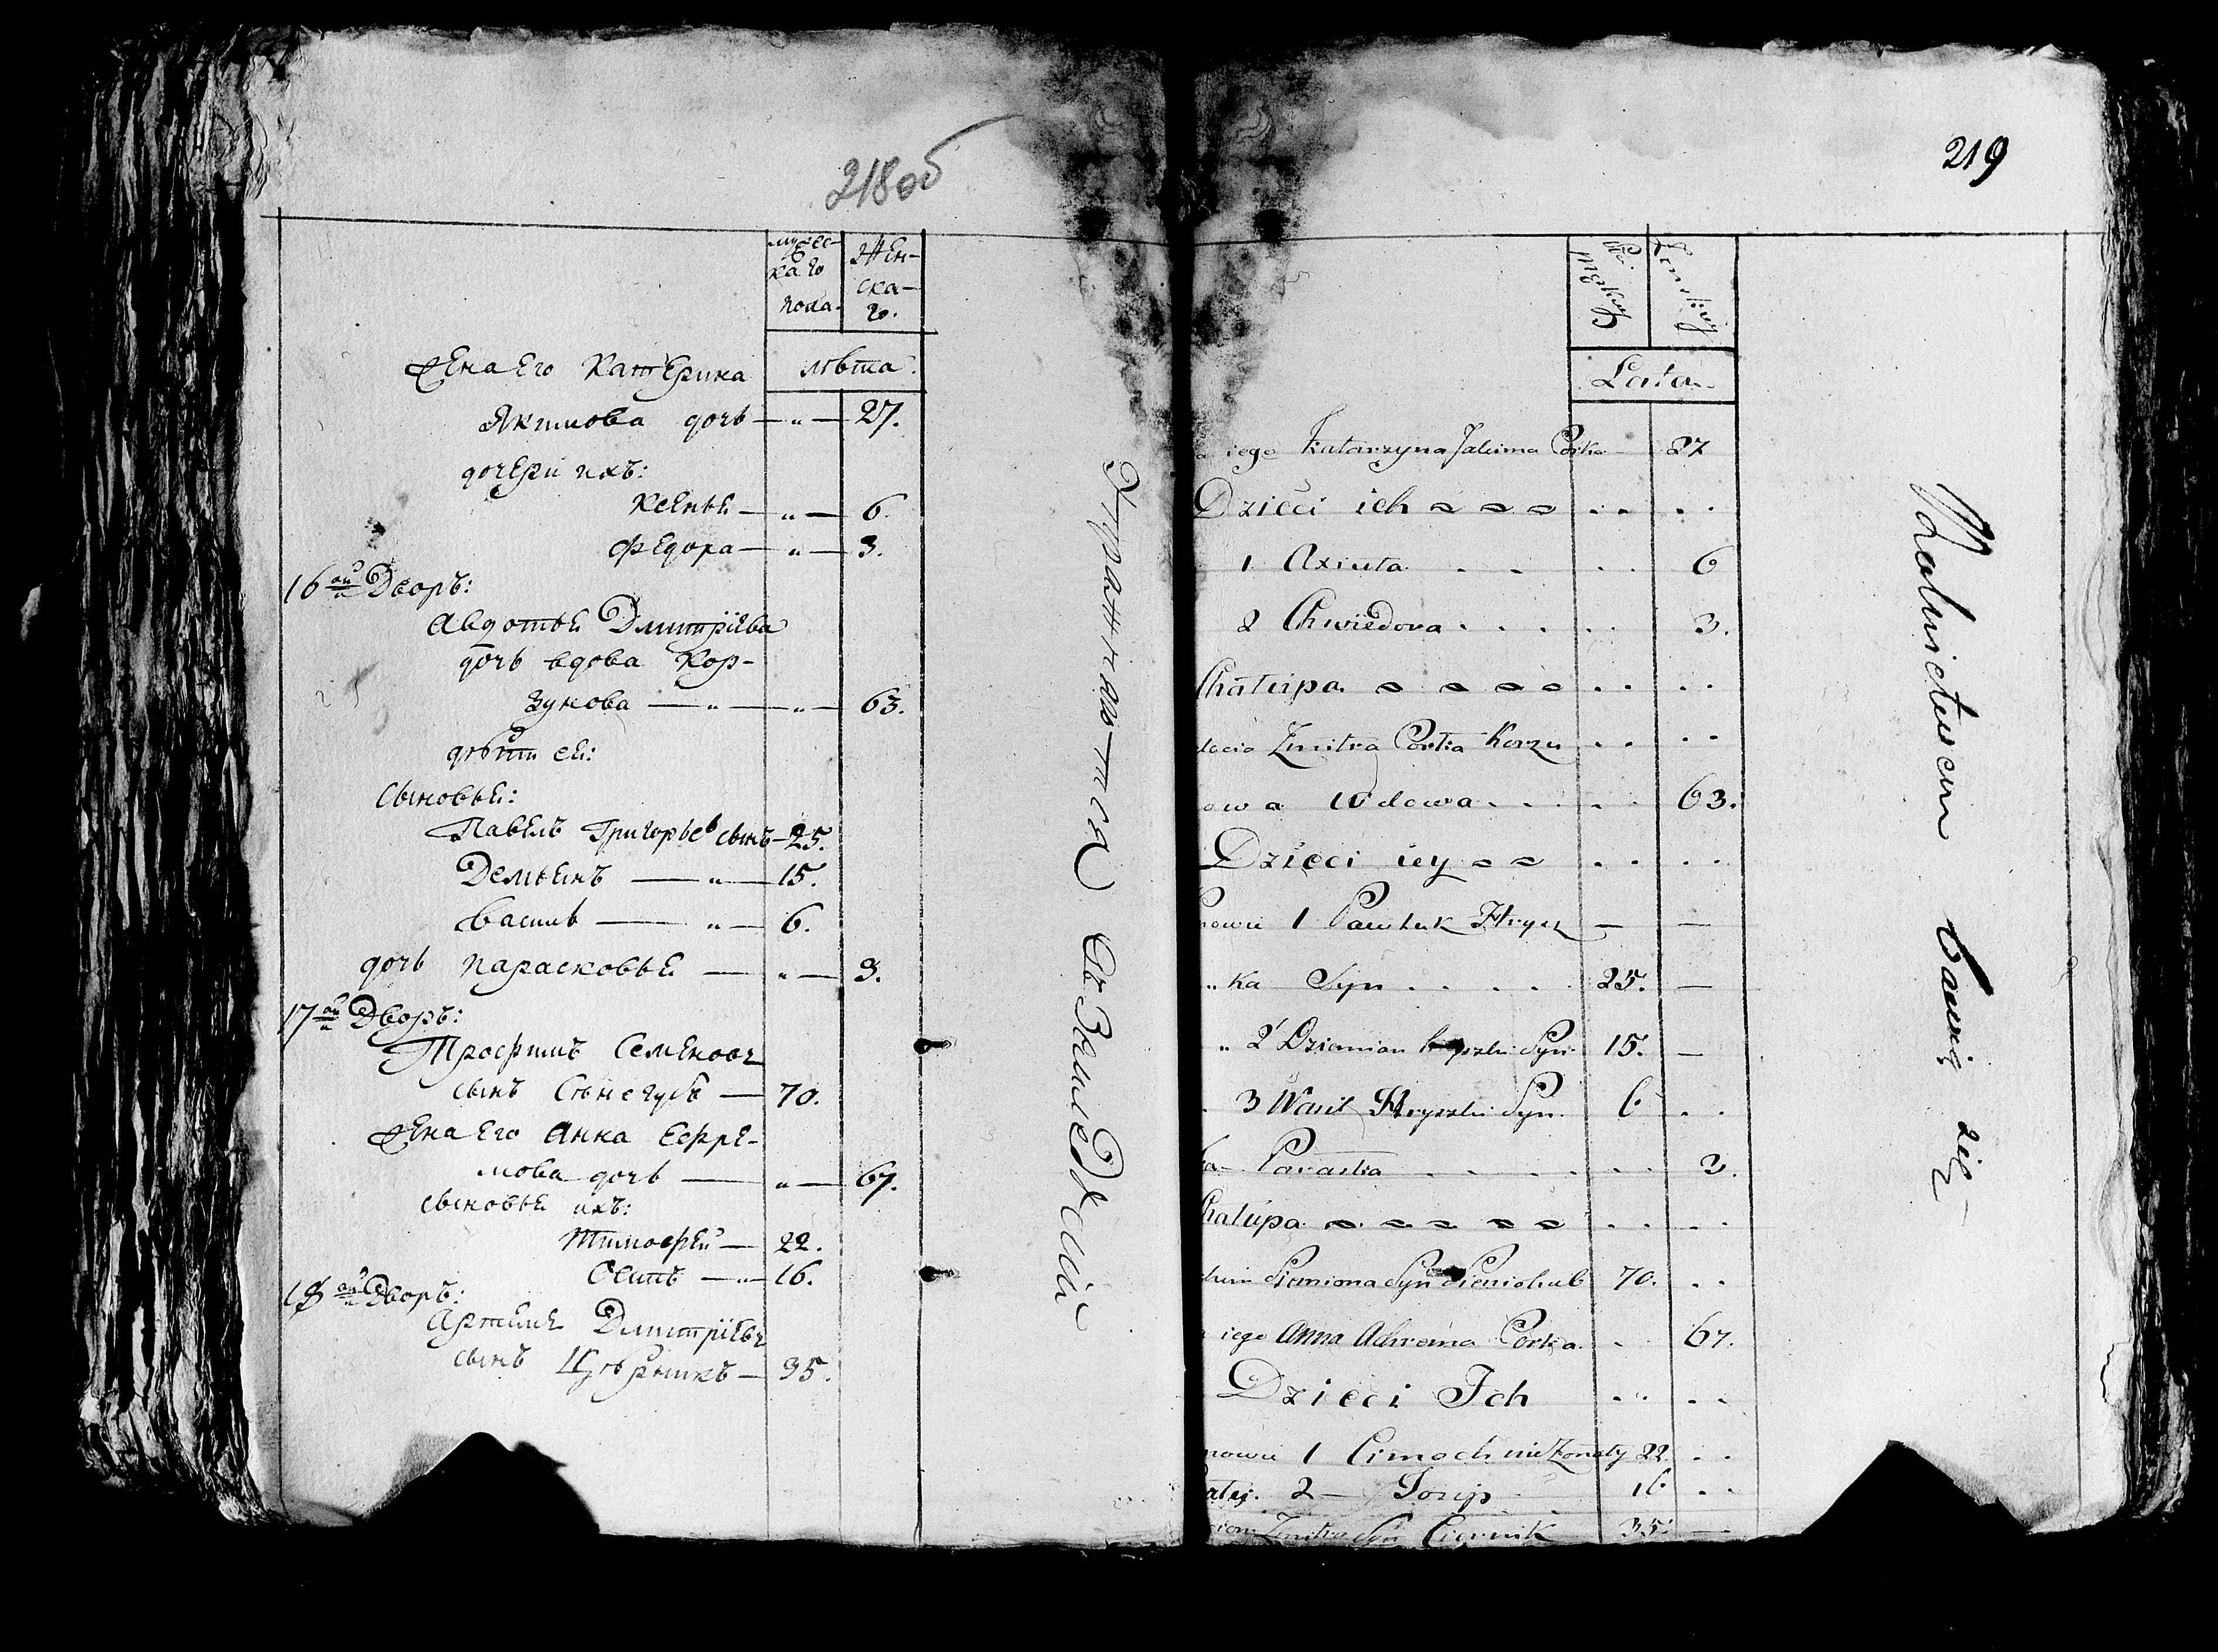 218 об
мужес-
каго
пола.
жен-
ска-
го.
лѣта.
жена его Катерина
Якимова дочь — „ — 27.
дочери ихъ:
Ксенья — „ — 6.
Федора — „ — 3.
16ой Дворъ:
Авдотья Дмитрiева
дочь вдова Кор-
зунова — „ — „ — 63.
дѣти ея:
сыновья:
Павелъ Григорьев сынъ — 25.
Демьянъ — „ — 15.
Василь — „ — 6.
дочь Парасковья — „ — 3.
17ой Дворъ:
Трофимъ Семенов
сынъ Сѣнегубъ — 70.
жена его Анна Ефре-
мова дочь — „ — 67.
сыновья ихъ:
Тимофей — 22.
Осипъ — „ — 16.
18ой Дворъ:
Артемъ Дмитрiев
сынъ — 35.
Упражняются въ Земледѣлiи
219
Płci
Męzkiey
Zenskiey
Lata
iego Katarzyna Jakima Corka — 27
Dzieci ich
1 Axiuta . . . . 6
2 Chwiedora . . . . 3.
Chałupa
docia Zmitra Corka Korzu
owa Wdowa . . . . 63.
Dzieci iey
nowie 1 Pawluk Hrysz — —
„ ka Syn . . . . 25. —
„ 2 Dziamian Hryszki Syn 15. —
3 Wasil Hryszki Syn. 6 . .
ka Paraska . . . . 3.
Chałupa
chim Siemiona Syn Sieniohub 70. . .
iego Anna Achrema Corka . 67.
Dzieci Ich
nowie 1 Cimoch nie Zonaty 22. . .
2 — Jozip 16 . .
Zmitra Syn 35. —
Rolnictwem bawią się